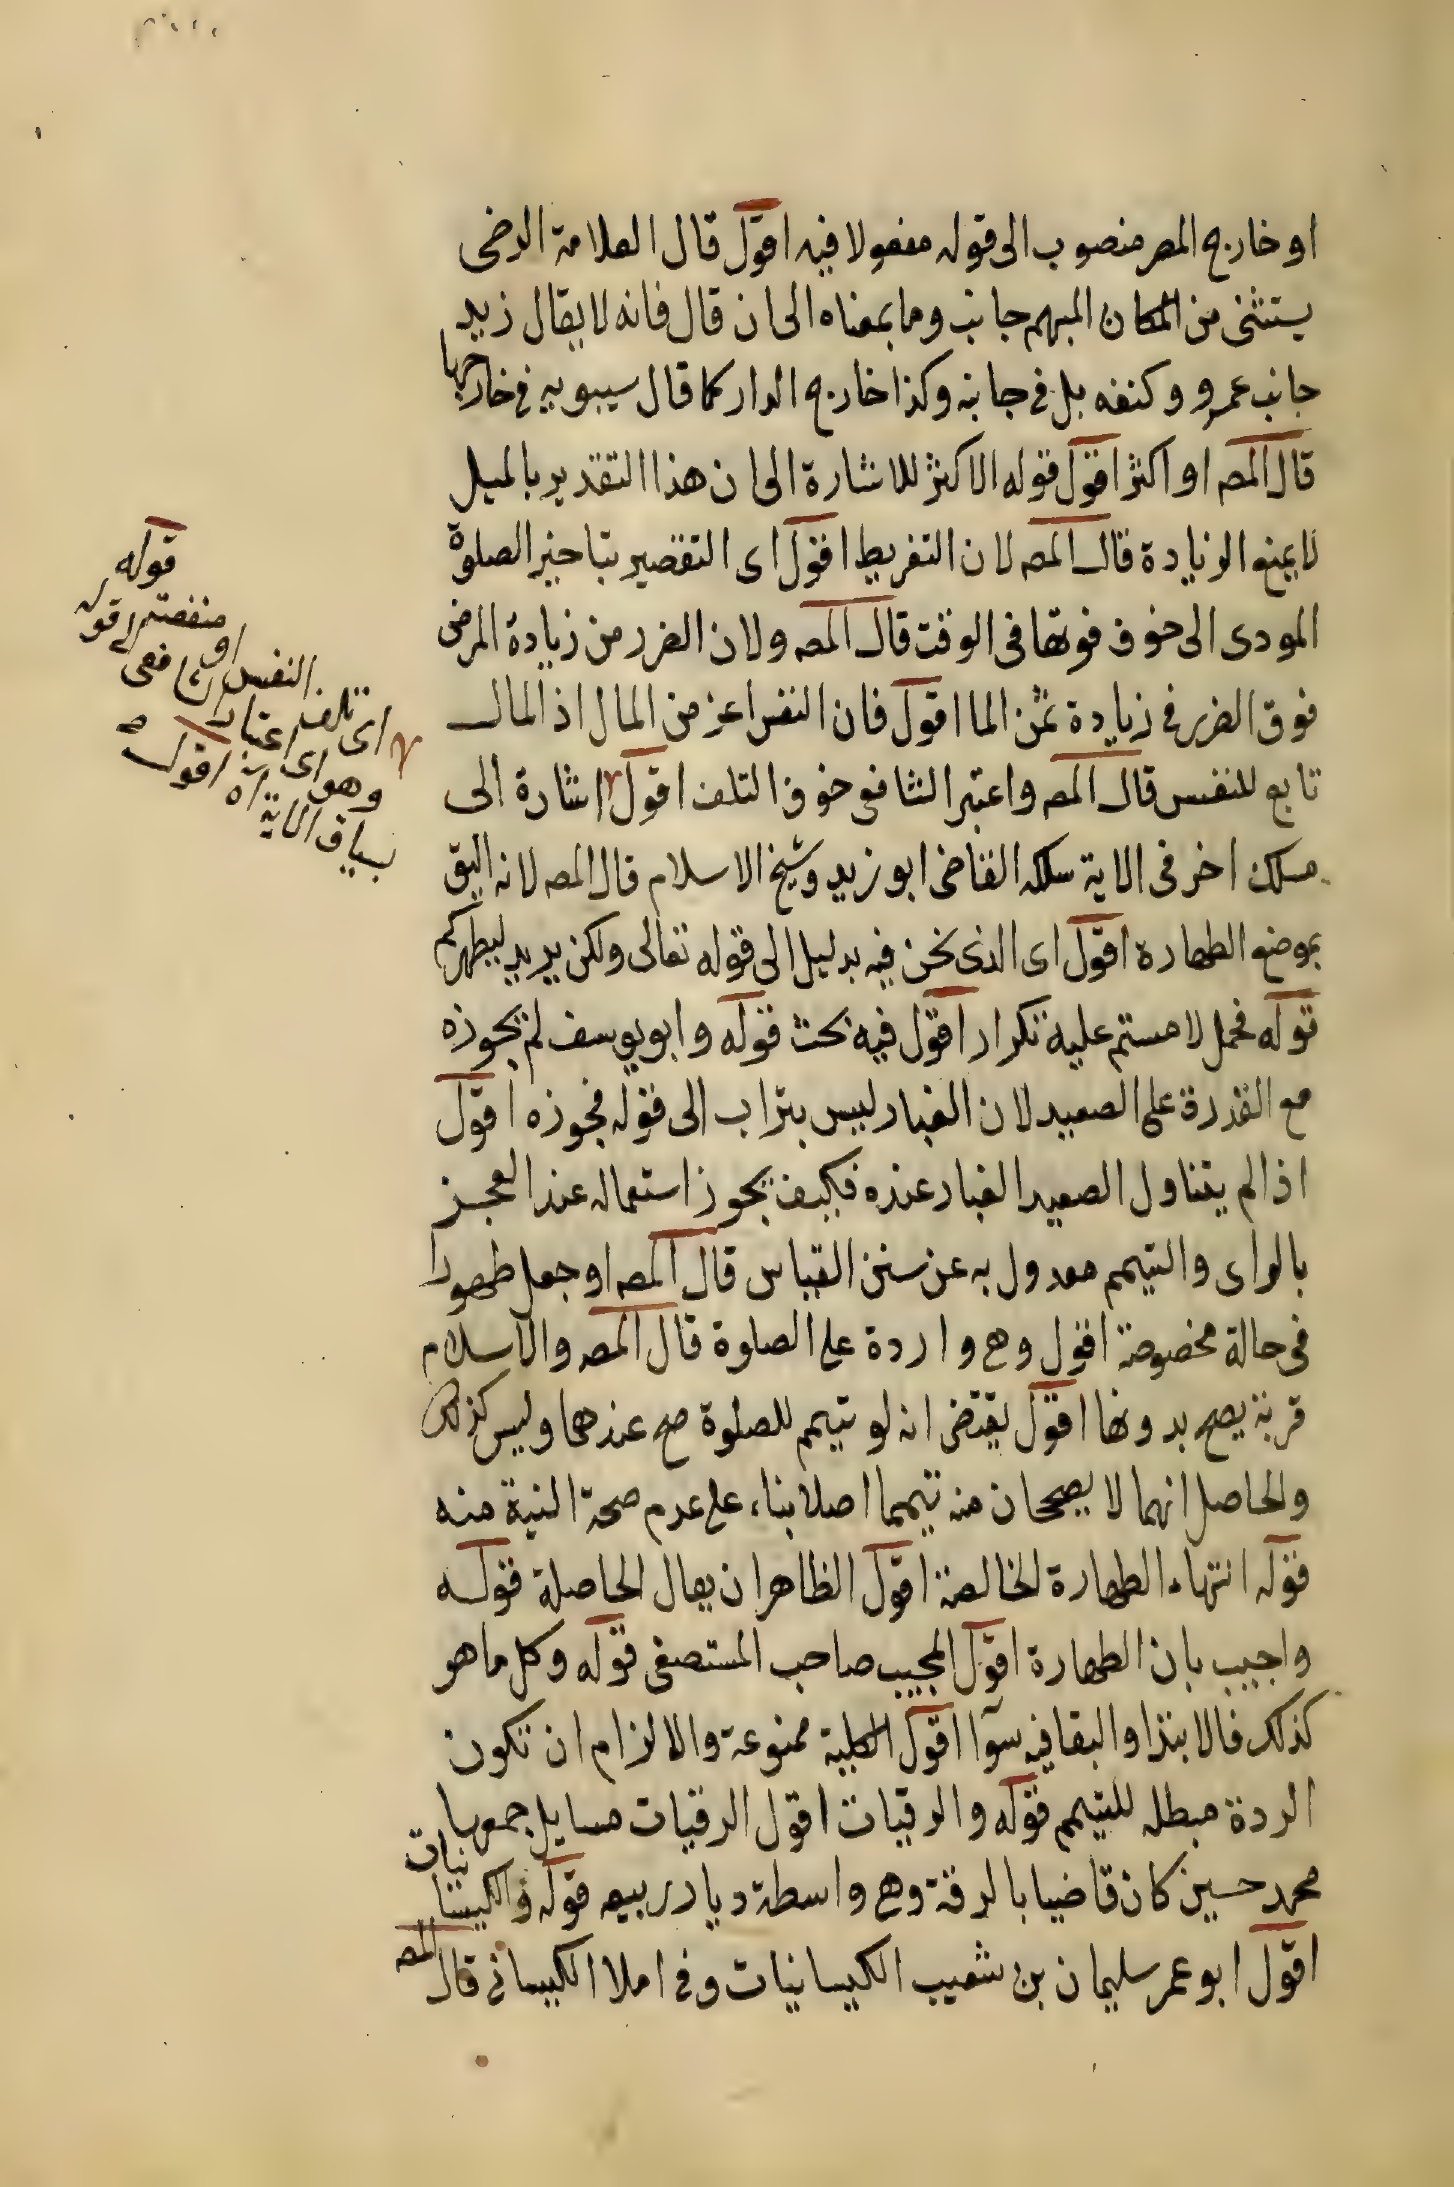 او خارج المصر منصوب الى قوله مفعولا فيه اقول قال العلامة الرضى
يستثنى من المكان المبهم جانب وما بمعناه الى ان قال فانه لا يقال زيد
جانب عمرو وكنفه بل فى جانبه وكذا خارج الدار كما قال سيبويه فى خارجها
قال المص او اكثر اقول قوله الاكثر للاشارة الى ان هذا التقدير بالميل
لا يمنع الزيادة قال المص لان التفريط اقول اى التقصير بتاخير الصلوة
المودى الى خوف فوتها فى الوقت قال المص ولان الضرر من زيادة المرض
فوق الضرر فى زيادة ثمن الما اقول فان النفس اعز من المال اذ المال
تابع للنفس قال المص واعتبر الشافعى خوف التلف اقول اشارة الى
مسلك اخر فى الاية سلكه القاضى ابو زيد وشيخ الاسلام قال المص لانه اليق
بموضع الطهارة اقول اى الذى نحن فيه بدليل الى قوله تعالى ولكن يريد ليطهركم
قوله فحمل لامستم عليه تكرار اقول فيه بحث قوله وابو يوسف لم يجوزه
مع القدرة على الصعيد لان الغبار ليس بتراب الى قوله فجوزه اقول
اذا لم يتناول الصعيد الغبار عنده فكيف يجوز استعماله عند العجز
بالراى والتيمم معدول به عن سنن القياس قال المص او جعل طهورا
فى حالة مخصوصة اقول وهى واردة على الصلوة قال المص والاسلام
قربة يصح بدونها اقول يقتضى انه لو تيمم للصلوة صح عندهما وليس كذلك
والحاصل انهما لا يصححان منه تيمما اصلا بناء على عدم صحة النية منه
قوله انتهاء الطهارة الخالصة اقول الظاهر ان يقال الحاصلة قوله
واجيب بان الطهارة اقول المجيب صاحب المستصفى قوله وكل ما هو
كذلك فالابتدا والبقا فيه سوآ اقول الكلية ممنوعة والا لزام ان تكون
الردة مبطله للتيمم قوله والرقيات اقول الرقيات مسايل جمعها
محمد حسين كان قاضيا بالرقة وهى واسطة ديار ربيعه قوله والكيسانيات
اقول ابو عمر سليمان بن شعيب الكيسانيات وفى املا الكيسانى قال المص
قوله
اى تلف النفس او منفعته قوله
وهو اى اعتبار الشافعى
بسياق الاية آه اقول